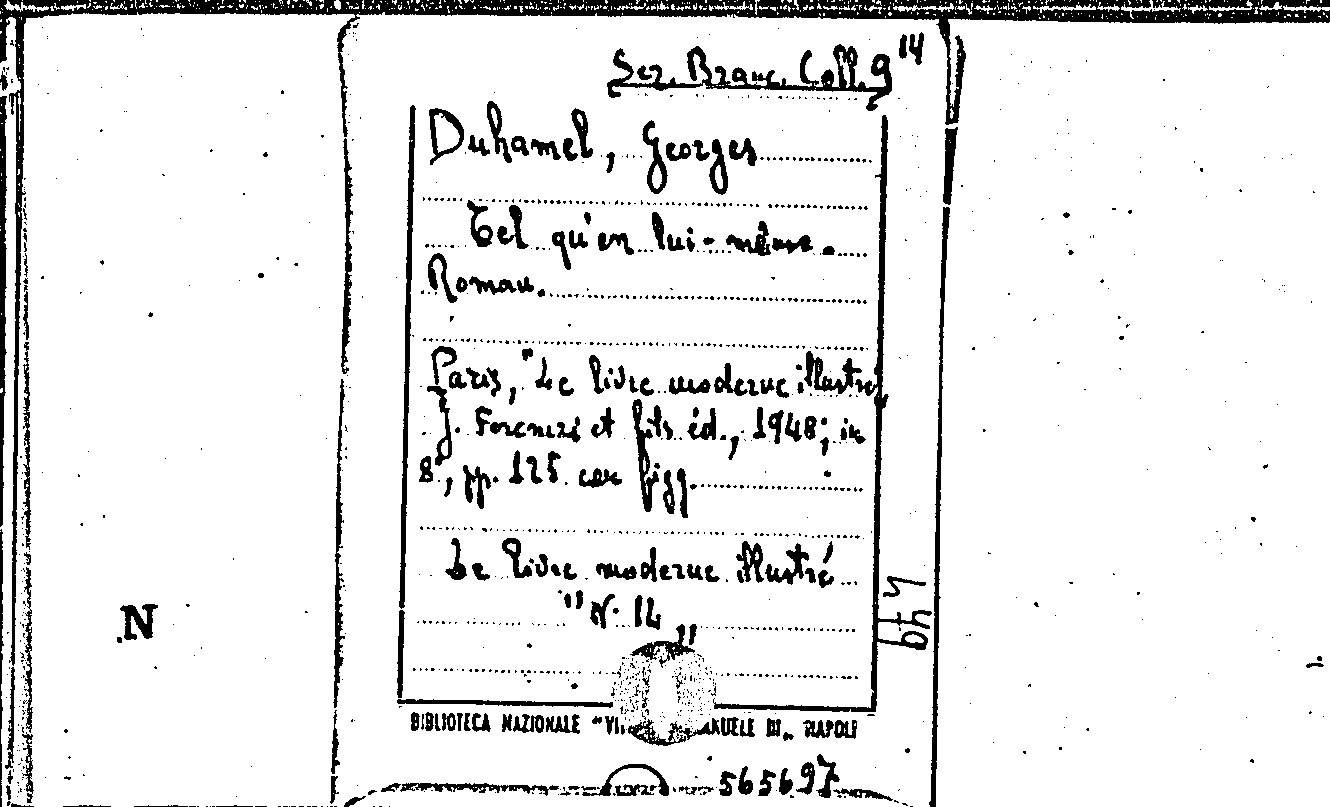 Sez. Branc. Coll. 9 14
Duhamel, Georges
Tel qu'en lui-même.
Roman.
Paris, "Le livre moderne illustré,,
J. Ferenczi et fils éd., 1948; in
8°, pp. 125 con figg.
Le livre moderne illustré
"N. 14,,
N
BIBLIOTECA NAZIONALE "VI ANUELE III,, NAPOLI
565697